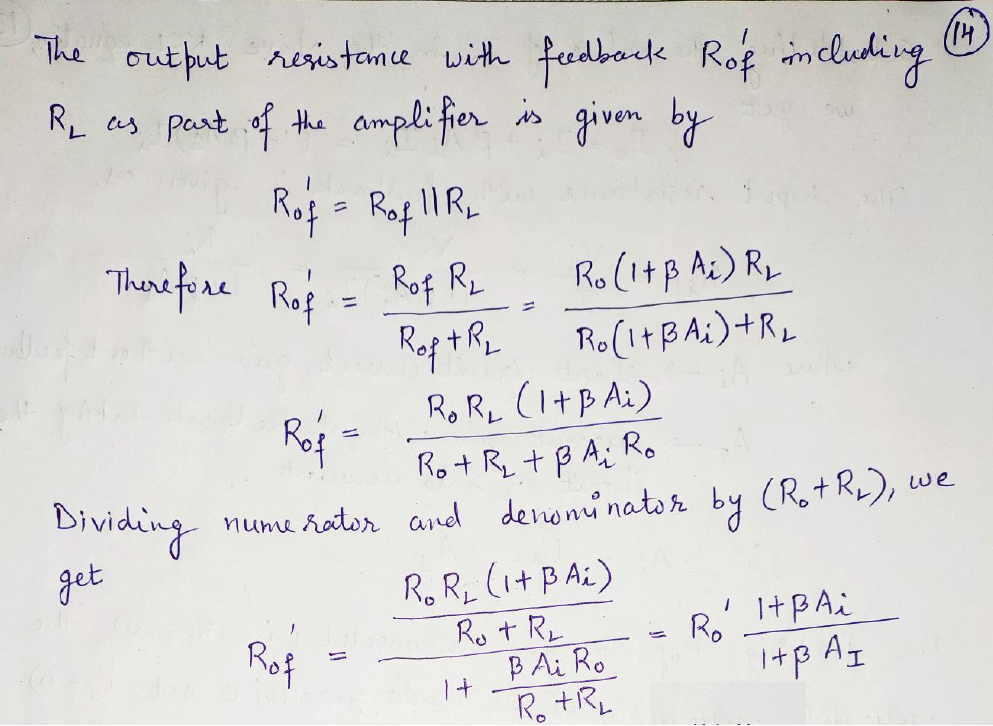 14
The output resistance with feedback Rof' including
RL as part of the amplifier is given by
Rof' = Rof || RL
Therefore Rof' = Rof RL / (Rof + RL) = Ro(1+β Ai) RL / (Ro(1+β Ai)+RL)
Rof' = Ro RL (1+β Ai) / (Ro + RL + β Ai Ro)
Dividing numerator and denominator by (Ro+RL), we
get
Rof' = (Ro RL (1+β Ai) / (Ro + RL)) / (1 + β Ai Ro / (Ro + RL)) = Ro' (1+β Ai) / (1+β AI)